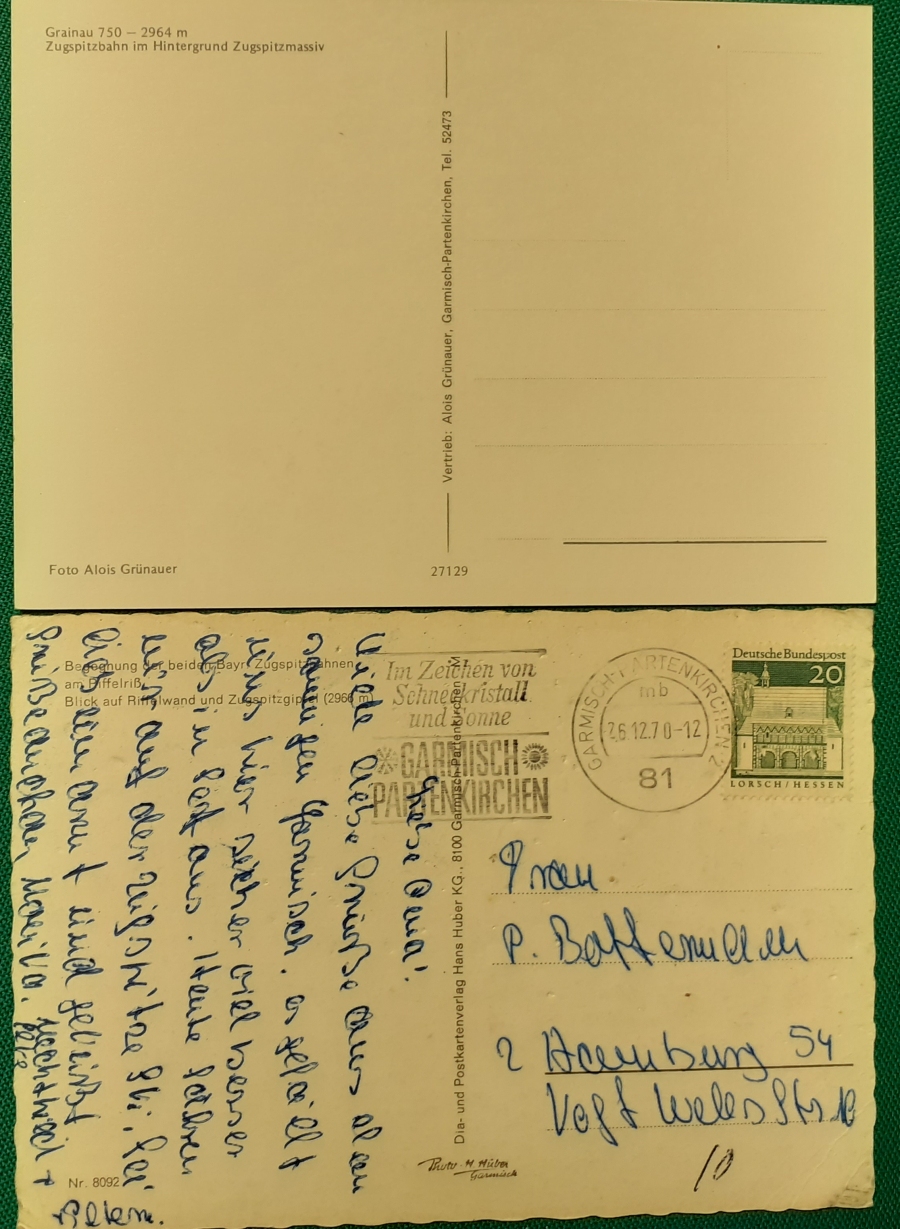 Grainau 750 — 2964 m
Zugspitzbahn im Hintergrund Zugspitzmassiv
Vertrieb: Alois Grünauer, Garmisch-Partenkirchen, Tel. 52473
Foto Alois Grünauer
27129
Begegnung der beiden Bayr. Zugspitzbahnen
am Riffelriß
Blick auf Riffelwand und Zugspitzgipfel (2966 m)
Im Zeichen von
Schneekristall
und Sonne
GARMISCH
PARTENKIRCHEN
GARMISCH-PARTENKIRCHEN 2
mb
26.12.70-12
81
Deutsche Bundespost
20
LORSCH/HESSEN
Liebe Oma!
Viele liebe Grüße aus dem
Garmisch. es gefällt
uns hier sicher viel besser
als in
. Heute fahren
wir auf der Zugspitze Ski, bei
und
Eltern.
Dia- und Postkartenverlag Hans Huber KG., 8100 Garmisch-Partenkirchen M
Frau
P.
2 Hamburg 54
Vogt Wells Str.
10
Photo H. Huber
Garmisch
Nr. 8092